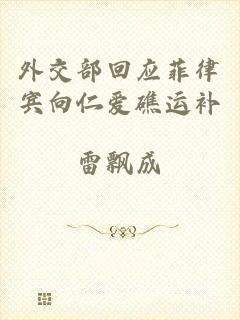 外交部回应菲律
宾向仁爱礁运补
雷飘成